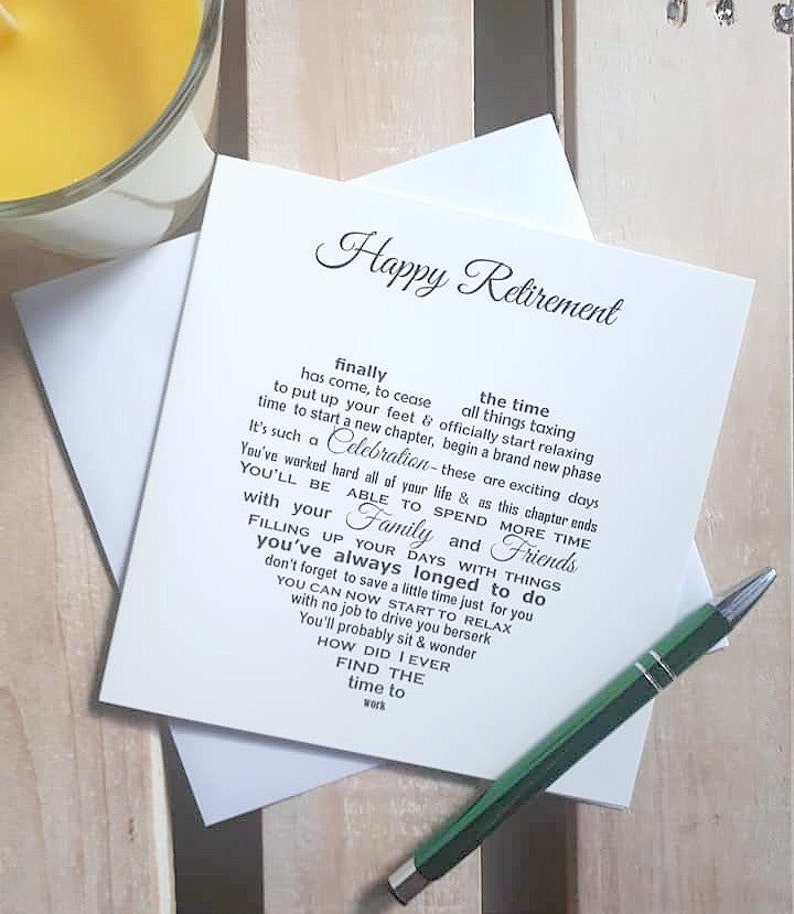 Happy Retirement
finally the time
has come, to cease all things taxing
to put up your feet & officially start relaxing
time to start a new chapter, begin a brand new phase
It's such a Celebration - these are exciting days
You've worked hard all of your life & as this chapter ends
YOU'LL BE ABLE TO SPEND MORE TIME
with your Family and Friends
FILLING UP YOUR DAYS WITH THINGS
you've always longed to do
don't forget to save a little time just for you
YOU CAN NOW START TO RELAX
with no job to drive you berserk
You'll probably sit & wonder
HOW DID I EVER
FIND THE
time to
work